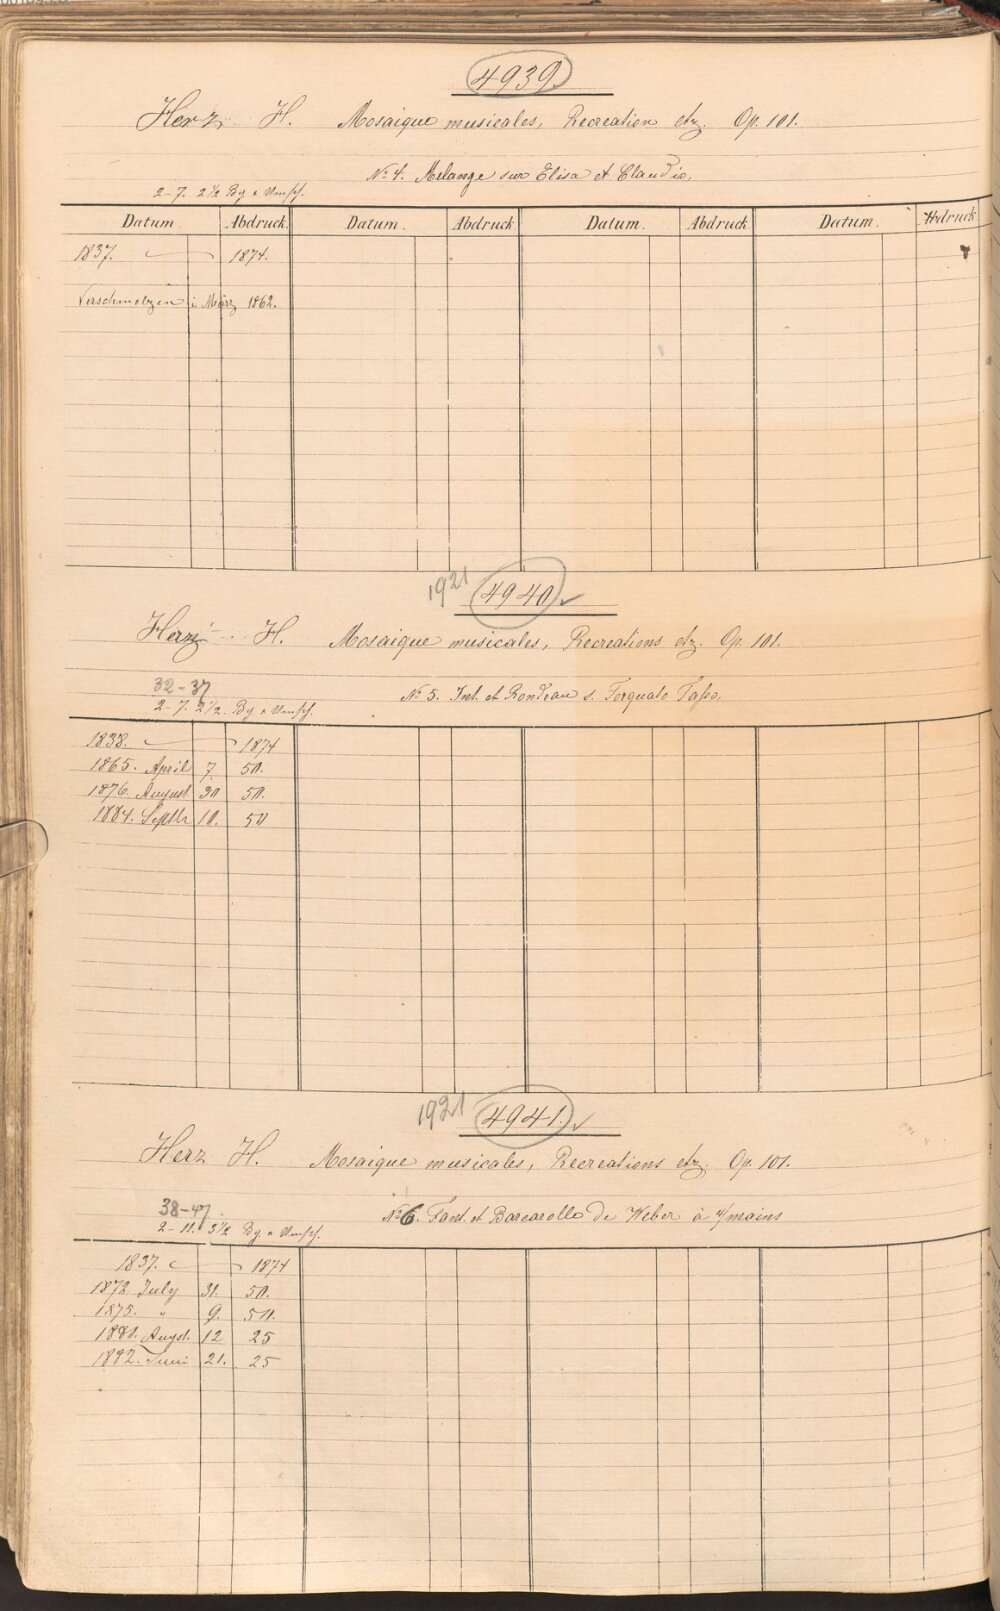 4939.
Herz H. Mosaique musicales, Recreation etz. Op. 101.
No 4. Melange sur Elisa et Claudio,
2-7. 2 1/2 Bg & Umsch.
Datum. Abdruck. Datum. Abdruck. Datum. Abdruck. Datum. Abdruck
1837. 1874.
Verschmolzen i März 1862.
1921 4940.
Herz H. Mosaique musicales, Recreations etz. Op. 101.
32-37 No 5. Int. et Rondeau s. Torquato Tasso,
2-7. 2 1/2. Bg. & Umsch.
1838. 1874
1865. April 7. 50.
1876. August. 30 50.
1884. Septbr 10. 50
1921 4941.
Herz H. Mosaique musicales, Recreations etz. Op. 101.
38-47. No 6. Fant. et Barcarolle de Weber à 4/mains
2-11. 3 1/2 Bg. & Umsch.
1837. 1874
1872 July 31. 50.
1875. " 9. 50.
1880. Augst. 12 25
1882. Juni 21. 25